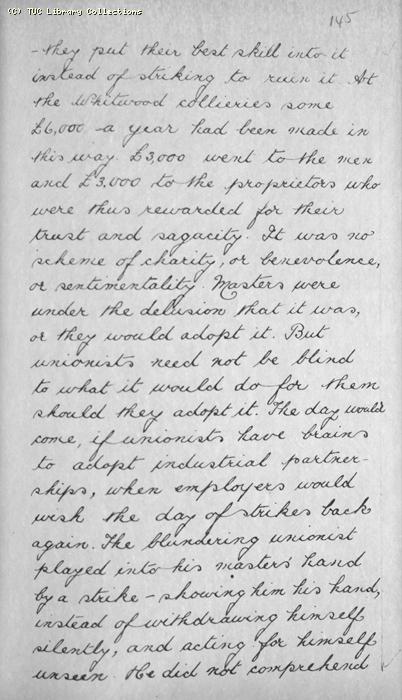 (C) TUC Library Collections
145
- they put their best skill into it
instead of striking to ruin it. At
the Whitwood collieries some
£6,000 - a year had been made in
this way. £3,000 went to the men
and £3.000 to the proprietors who
were thus rewarded for their
trust and sagacity. It was no
scheme of charity, or benevolence,
or sentimentality. Masters were
under the delusion that it was,
or they would adopt it. But
unionists need not be blind
to what it would do for them
should they adopt it. The day would
come, if unionists have brains
to adopt industrial partner-
ships, when employers would
wish the day of strikes back
again. The blundering unionist
played into his masters' hand
by a strike - showing him his hand,
instead of withdrawing himself
silently, and acting for himself
unseen. He did not comprehend